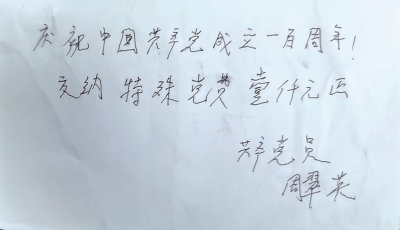 庆祝中国共产党成立一百周年！
交纳特殊党员费壹仟元正
共产党员
周翠英